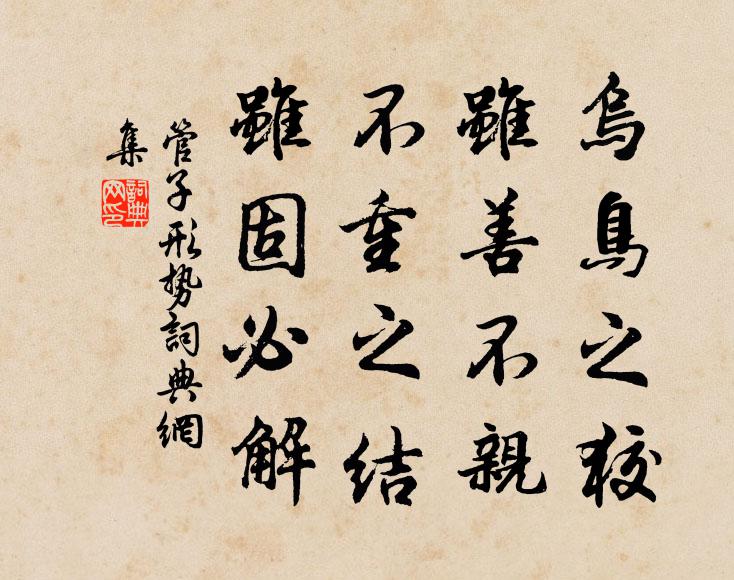 烏鳥之狡
雖善不親
不重之结
雖固必解
管子形势詞典網
集
詞典
网印